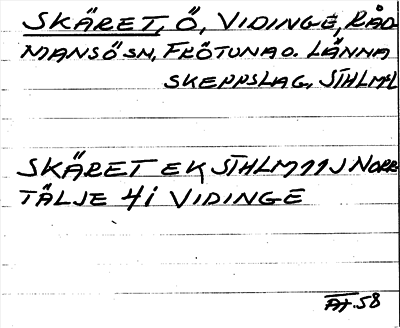 SKÄRET, Ö, VIDINGE, RÅD
MANSÖ SN, FRÖTUNA O. LÄNNA
SKEPPSLAG, STHLM-L
SKÄRET EK STHLM 11J NORR
TÄLJE 4i VIDINGE
AH.58